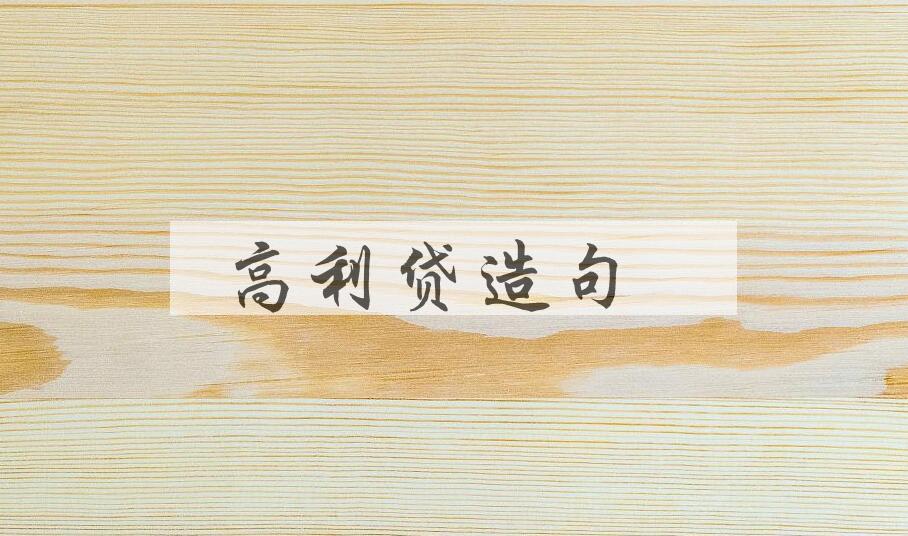 高利贷造句